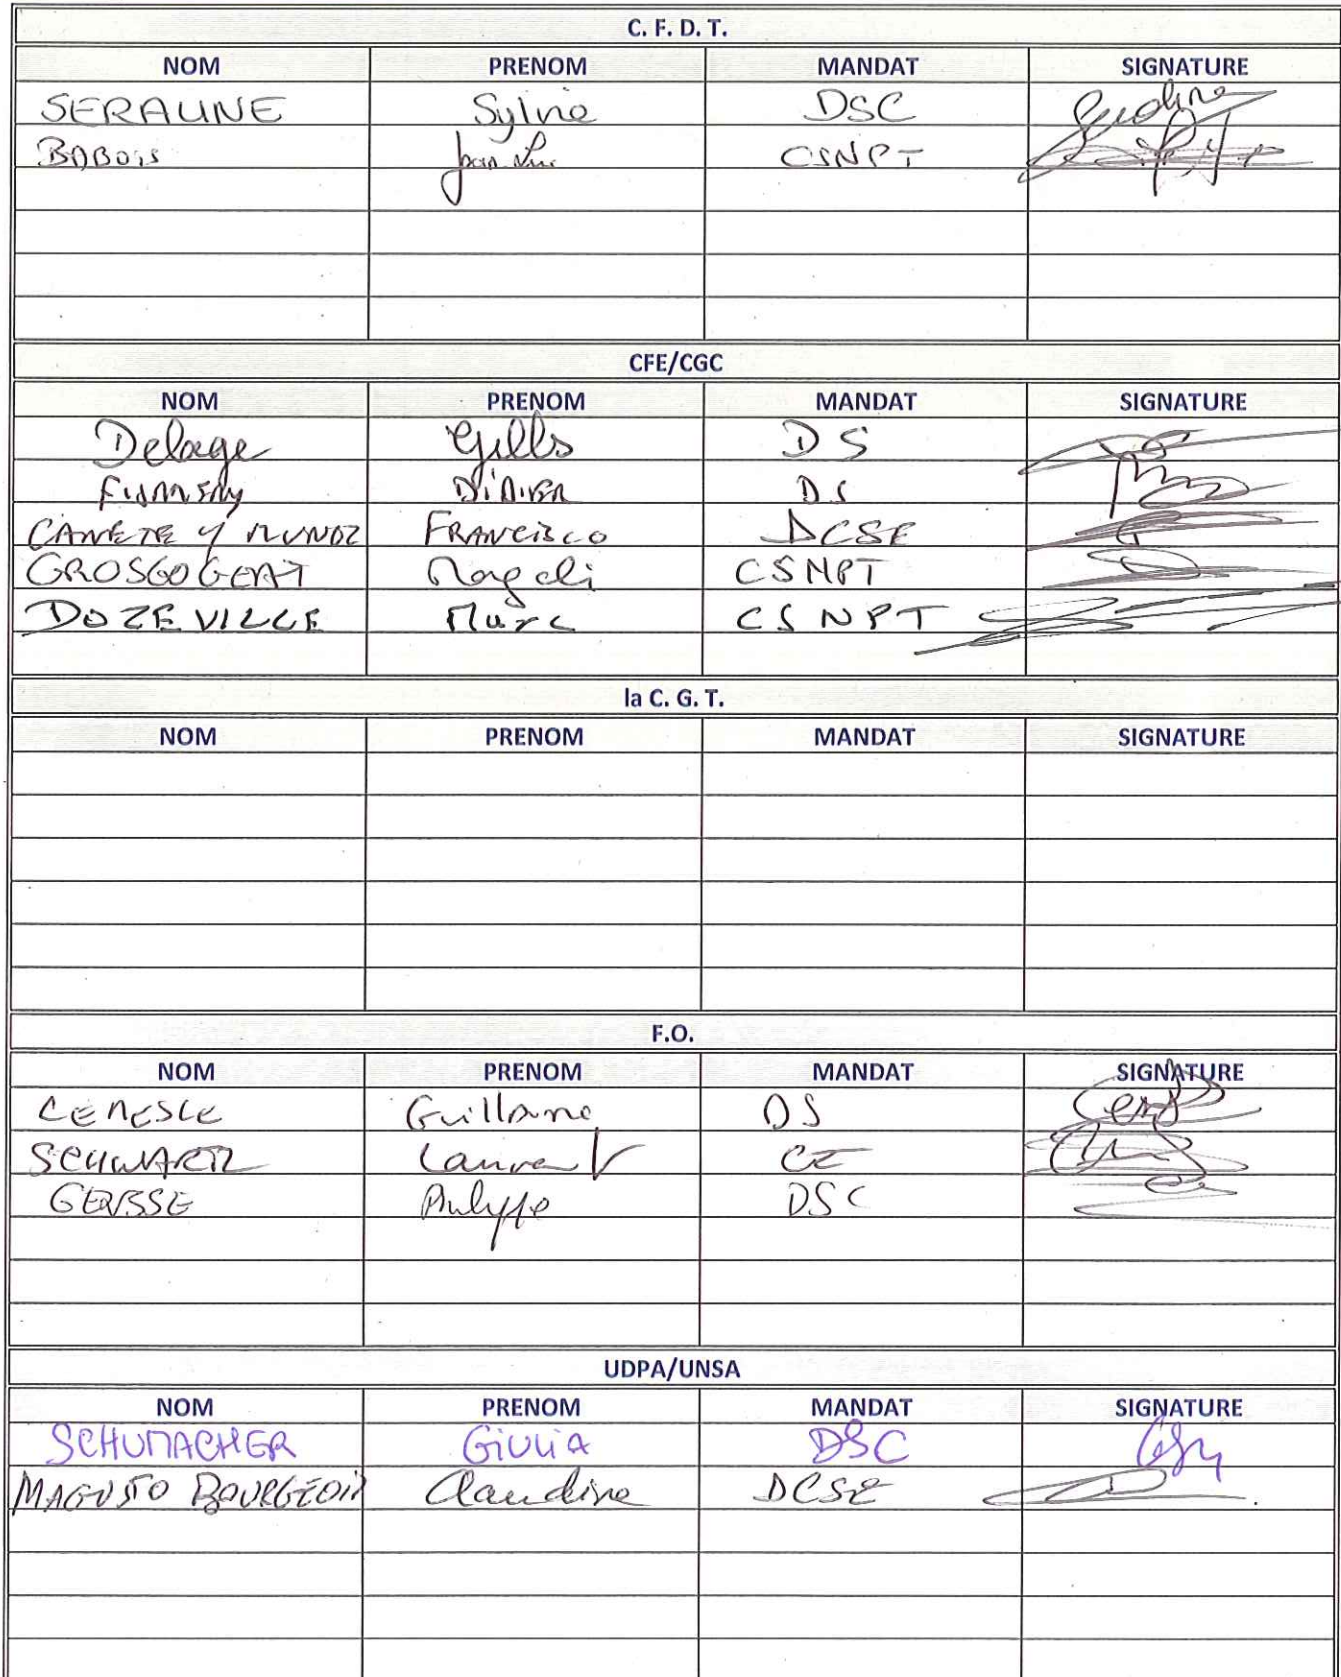 C. F. D. T.
NOM PRENOM MANDAT SIGNATURE
SERAUNE Sylvie DSC
BABOIS Jean Luc CSNPT
CFE/CGC
NOM PRENOM MANDAT SIGNATURE
Delage Gilles DS
DiDiER DS
CANETE Y MUNOZ FRANCISCO DCSE
GROSGOGEAT Magali CSNPT
DOZEVILLE Marc CSNPT
la C. G. T.
NOM PRENOM MANDAT SIGNATURE
F.O.
NOM PRENOM MANDAT SIGNATURE
Guillaume DS
SCHWARTZ Laurent CE
Philippe DSC
UDPA/UNSA
NOM PRENOM MANDAT SIGNATURE
SCHUMACHER GiULiA DSC
MAGUSTO BOURGEOIS Claudine DCSE